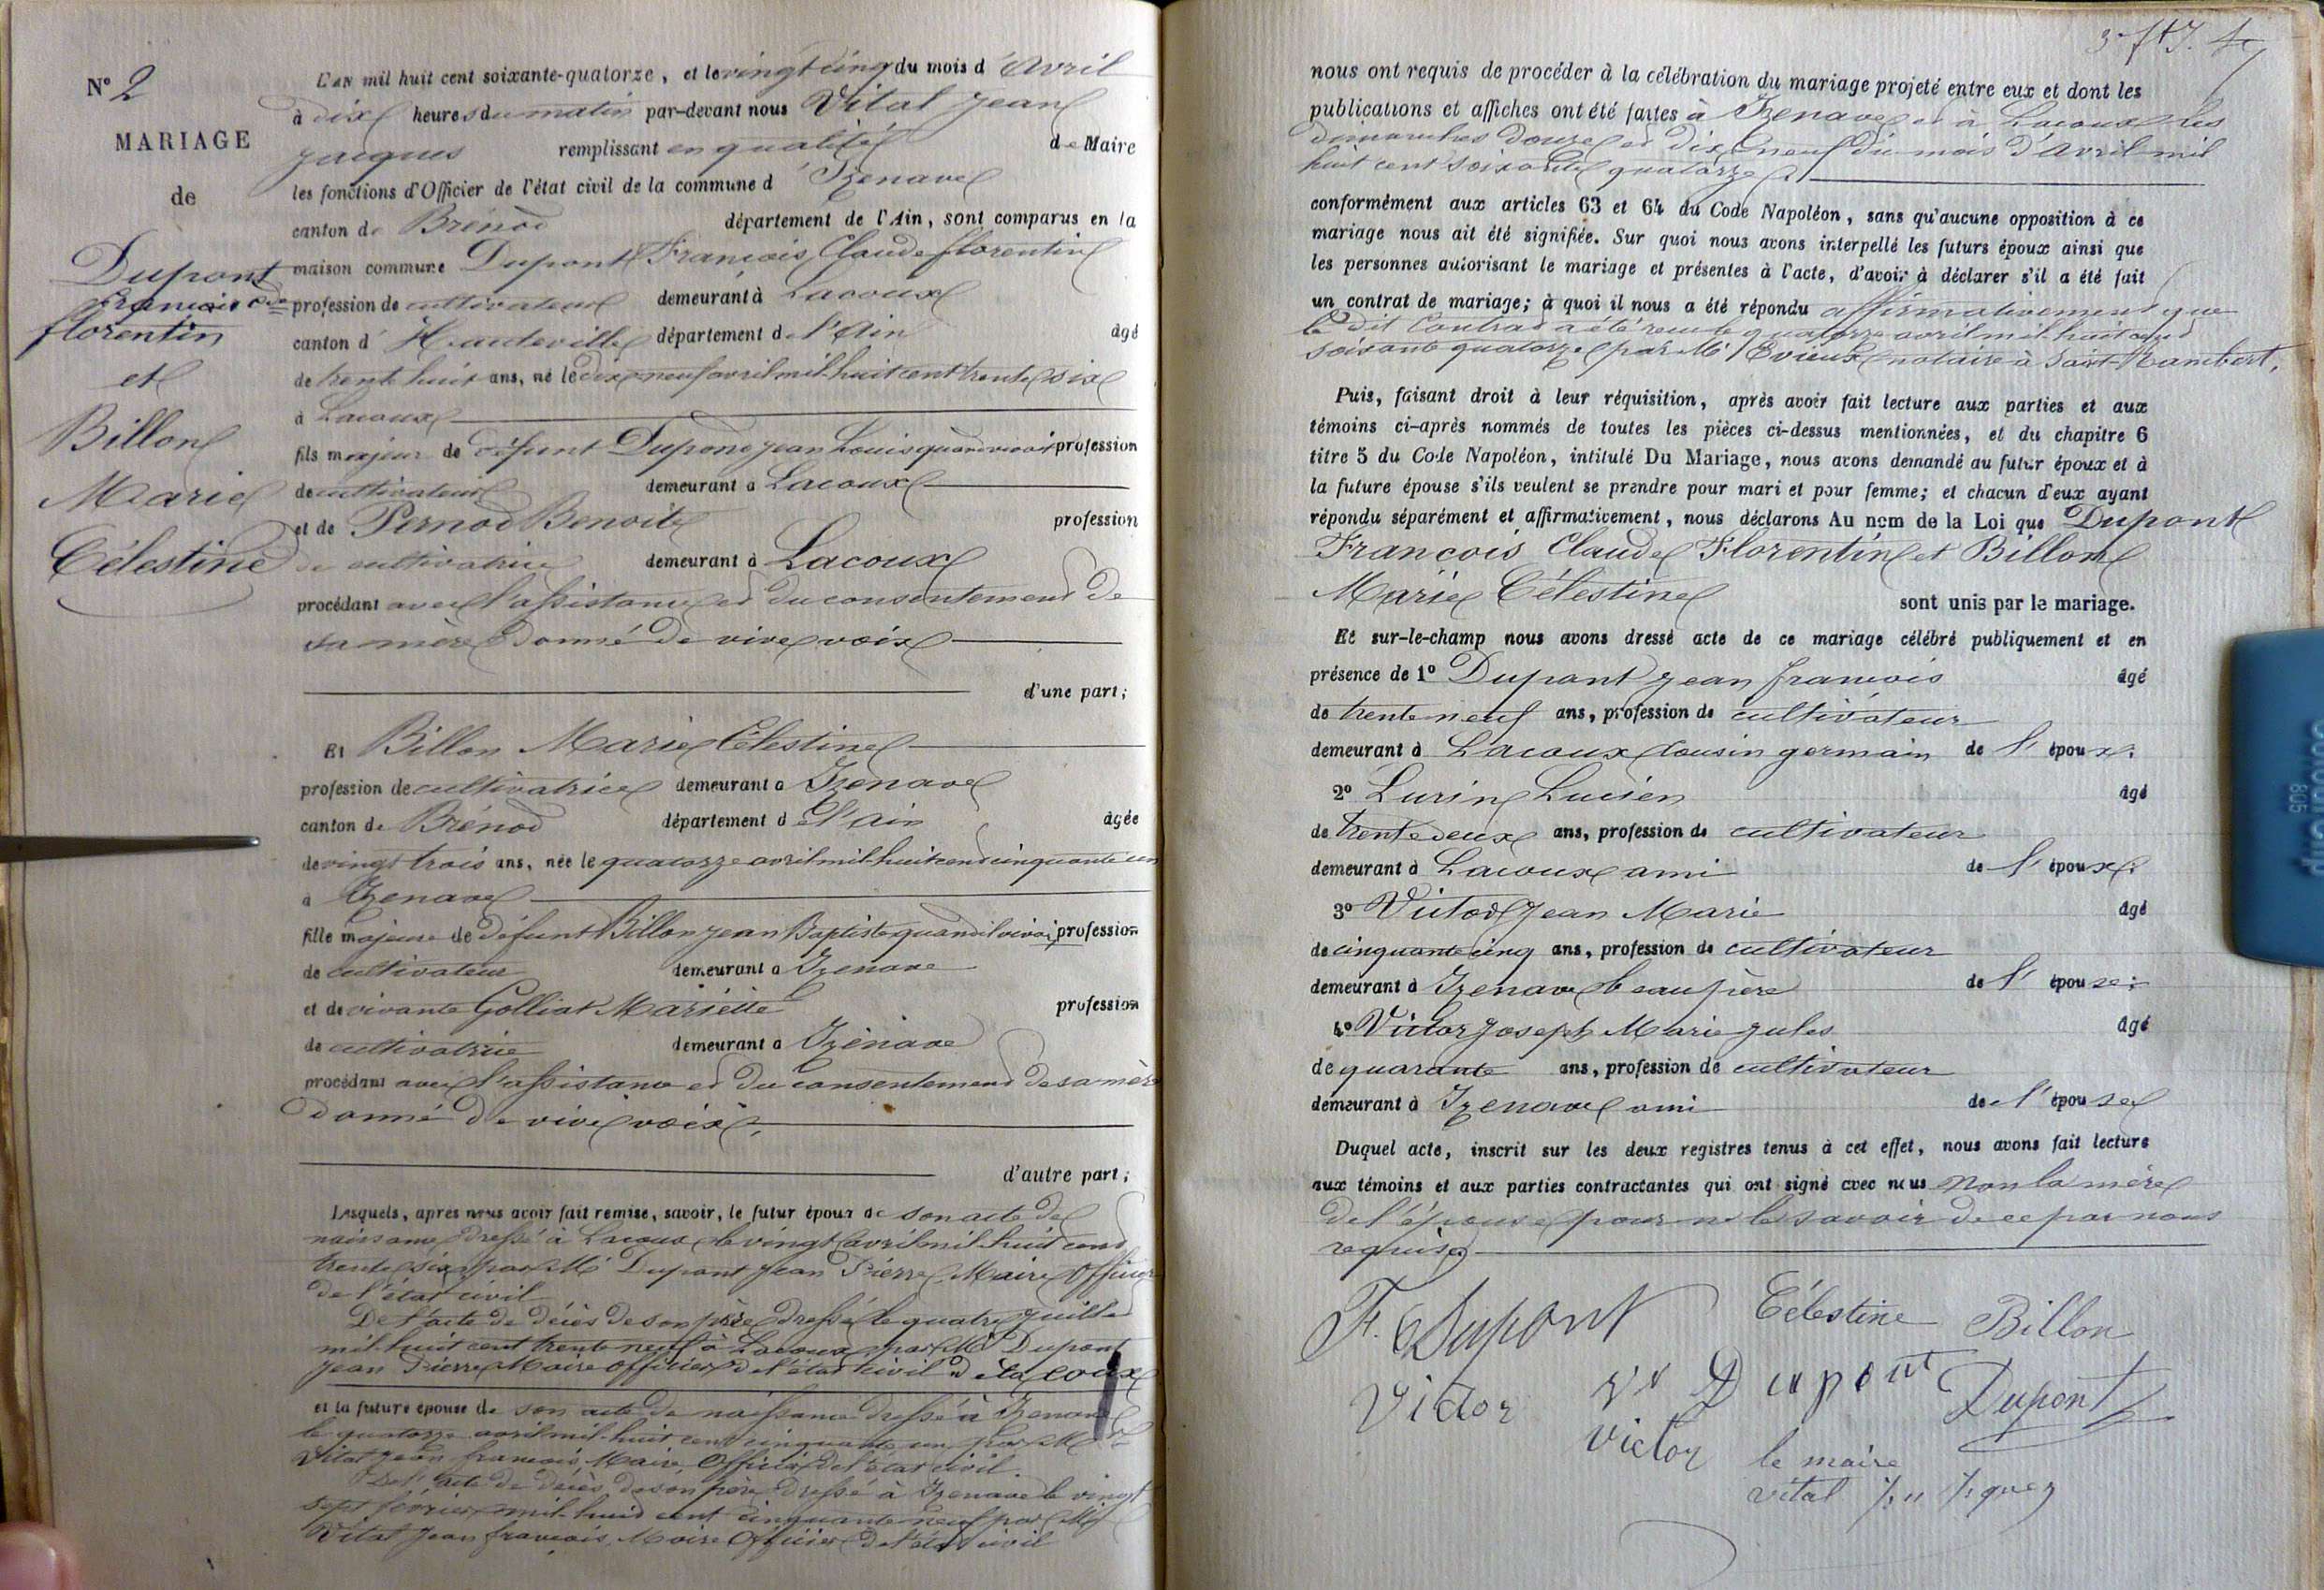 N° 2
MARIAGE
de
Dupont
François Cde
florentin
et
Billon
Marie
Célestine
L'AN mil huit cent soixante-quatorze, et le vingt cinq du mois d'Avril
à dix heures du matin par-devant nous Vital Jean
Jacques remplissant en qualité de Maire
les fonctions d'Officier de l'état civil de la commune d'Izenave
canton de Brénod département de l'Ain, sont comparus en la
maison commune Dupont François Claude florentin
profession de cultivateur demeurant à Lacoux
canton d'Hauteville département de l'Ain âgé
de trente huit ans, né le dix neuf avril mil huit cent trente six
à Lacoux
fils majeur de défunt Dupont Jean Louis quand vivait profession
de cultivateur demeurant à Lacoux
et de Pernod Benoite profession
de cultivatrice demeurant à Lacoux
procédant avec l'assistance et du consentement de
sa mère donné de vive voix
d'une part;
Et Billon Marie Célestine
profession de cultivatrice demeurant à Izenave
canton de Brénod département d l'ain âgée
de vingt trois ans, née le quatorze avril mil huit cent cinquante un
à Izenave
fille majeure de défunt Billon Jean Baptiste quand il vivait profession
de cultivateur demeurant à Izenave
et de vivante Golliat Mariette profession
de cultivatrice demeurant à Izenave
procédant avec l'assistance et du consentement de sa mère
donné de vive voix,
d'autre part;
Lesquels, après nous avoir fait remise, savoir, le futur époux de son acte de
naissance dressé à Lacoux le vingt avril mil huit cent
trente six par Mr Dupont Jean Pierre Maire Officier
de l'état civil
De l'acte de décès de son père dressé le quatre juillet
mil huit cent trente neuf à Lacoux par Mr Dupont
Jean Pierre Maire officier de l'état civil de Lacoux
et la future épouse de son acte de naissance dressé à Izenave
le quatorze avril mil huit cent cinquante un par Mr
Vital Jean françois, Maire, Officier de l'état civil.
De l'acte de décès de son père dressé à Izenave le vingt
sept février mil huit cent cinquante neuf par Mr
Vital Jean françois, Maire Officier de l'état civil
nous ont requis de procéder à la célébration du mariage projeté entre eux et dont les
publications et affiches ont été faites à Izenave et à Lacoux les
dimanches douze et dix neuf du mois d'Avril mil
huit cent soixante quatorze
conformément aux articles 63 et 64 du Code Napoléon, sans qu'aucune opposition à ce
mariage nous ait été signifiée. Sur quoi nous avons interpellé les futurs époux ainsi que
les personnes autorisant le mariage et présentes à l'acte, d'avoir à déclarer s'il a été fait
un contrat de mariage; à quoi il nous a été répondu affirmativement que
le dit Contrat a été reçu le quatorze avril mil huit cent
soixante quatorze par Me Evieux notaire à Saint Rambert,
Puis, faisant droit à leur réquisition, après avoir fait lecture aux parties et aux
témoins ci-après nommés de toutes les pièces ci-dessus mentionnées, et du chapitre 6
titre 5 du Code Napoléon, intitulé Du Mariage, nous avons demandé au futur époux et à
la future épouse s'ils veulent se prendre pour mari et pour femme; et chacun d'eux ayant
répondu séparément et affirmativement, nous déclarons Au nom de la Loi que Dupont
François Claude Florentin et Billon
Marie Célestine sont unis par le mariage.
Et sur-le-champ nous avons dressé acte de ce mariage célébré publiquement et en
présence de 1° Dupont Jean françois âgé
de trente neuf ans, profession de cultivateur
demeurant à Lacoux Cousin germain de l'époux;
2° Lurin Lucien âgé
de trente deux ans, profession de cultivateur
demeurant à Lacoux ami de l'époux;
3° Victor Jean Marie âgé
de cinquante cinq ans, profession de cultivateur
demeurant à Izenave beau père de l'épouse;
4° Victor Joseph Marie Jules âgé
de quarante ans, profession de cultivateur
demeurant à Izenave ami de l'épouse
Duquel acte, inscrit sur les deux registres tenus à cet effet, nous avons fait lecture
aux témoins et aux parties contractantes qui ont signé avec nous non la mère
de l'épouse pour ne le savoir de ce par nous
requise
F. Dupont Célestine Billon
Victor Dupont Dupont
Victor le maire
vital